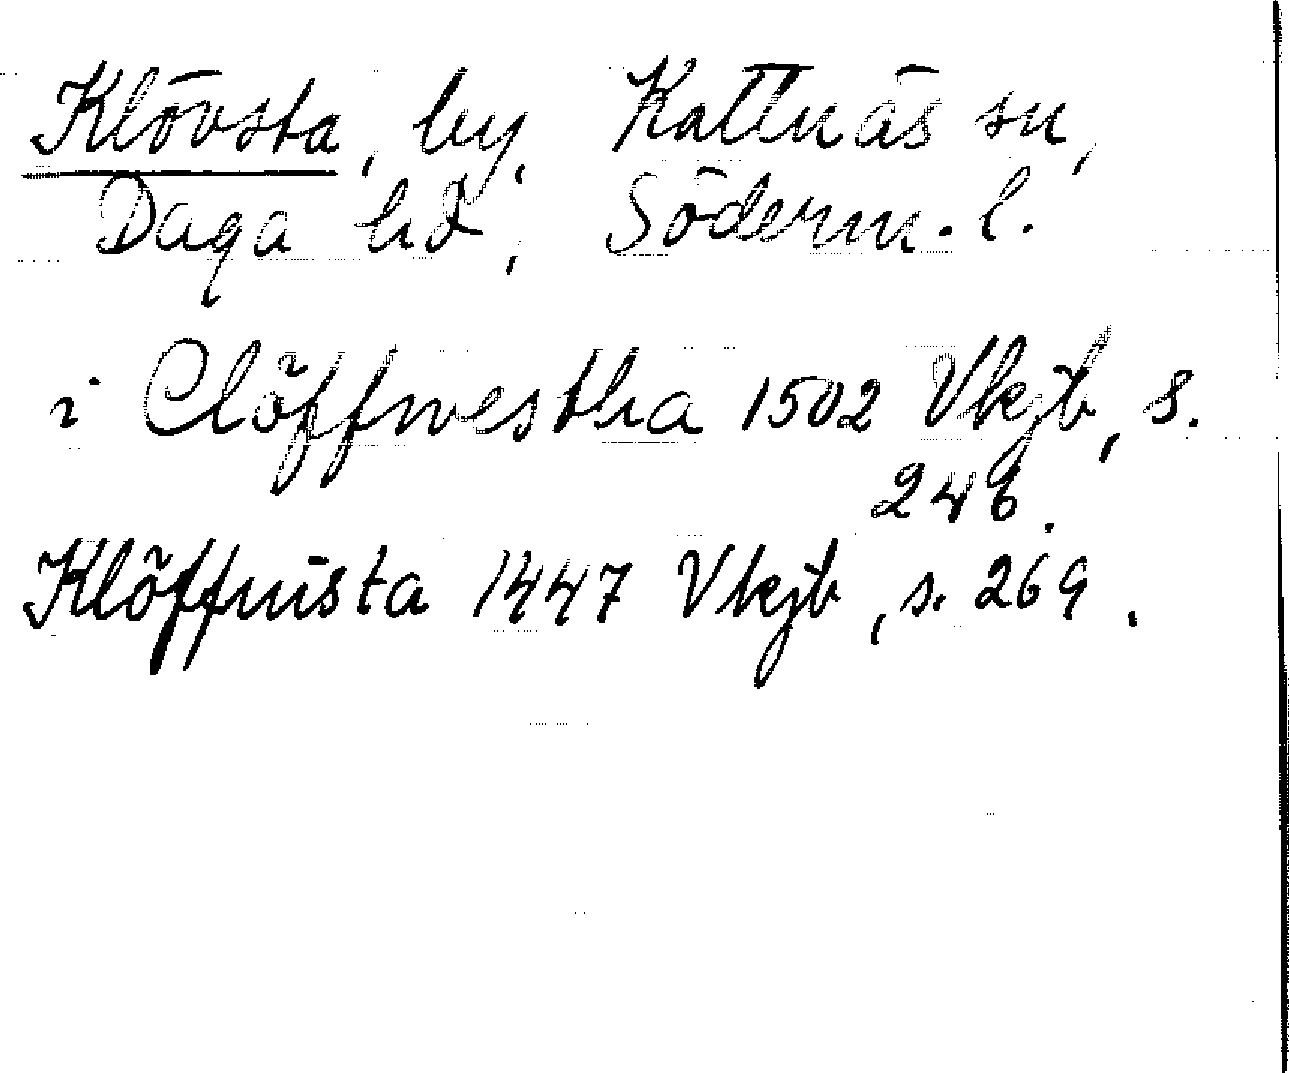 Klövsta, by, Kattnäs sn,
Daga hd, Söderm. l.
i Clöffwestha 1502 Vkjb, s.
246.
Klöffuista 1447 Vkjb, s. 269.